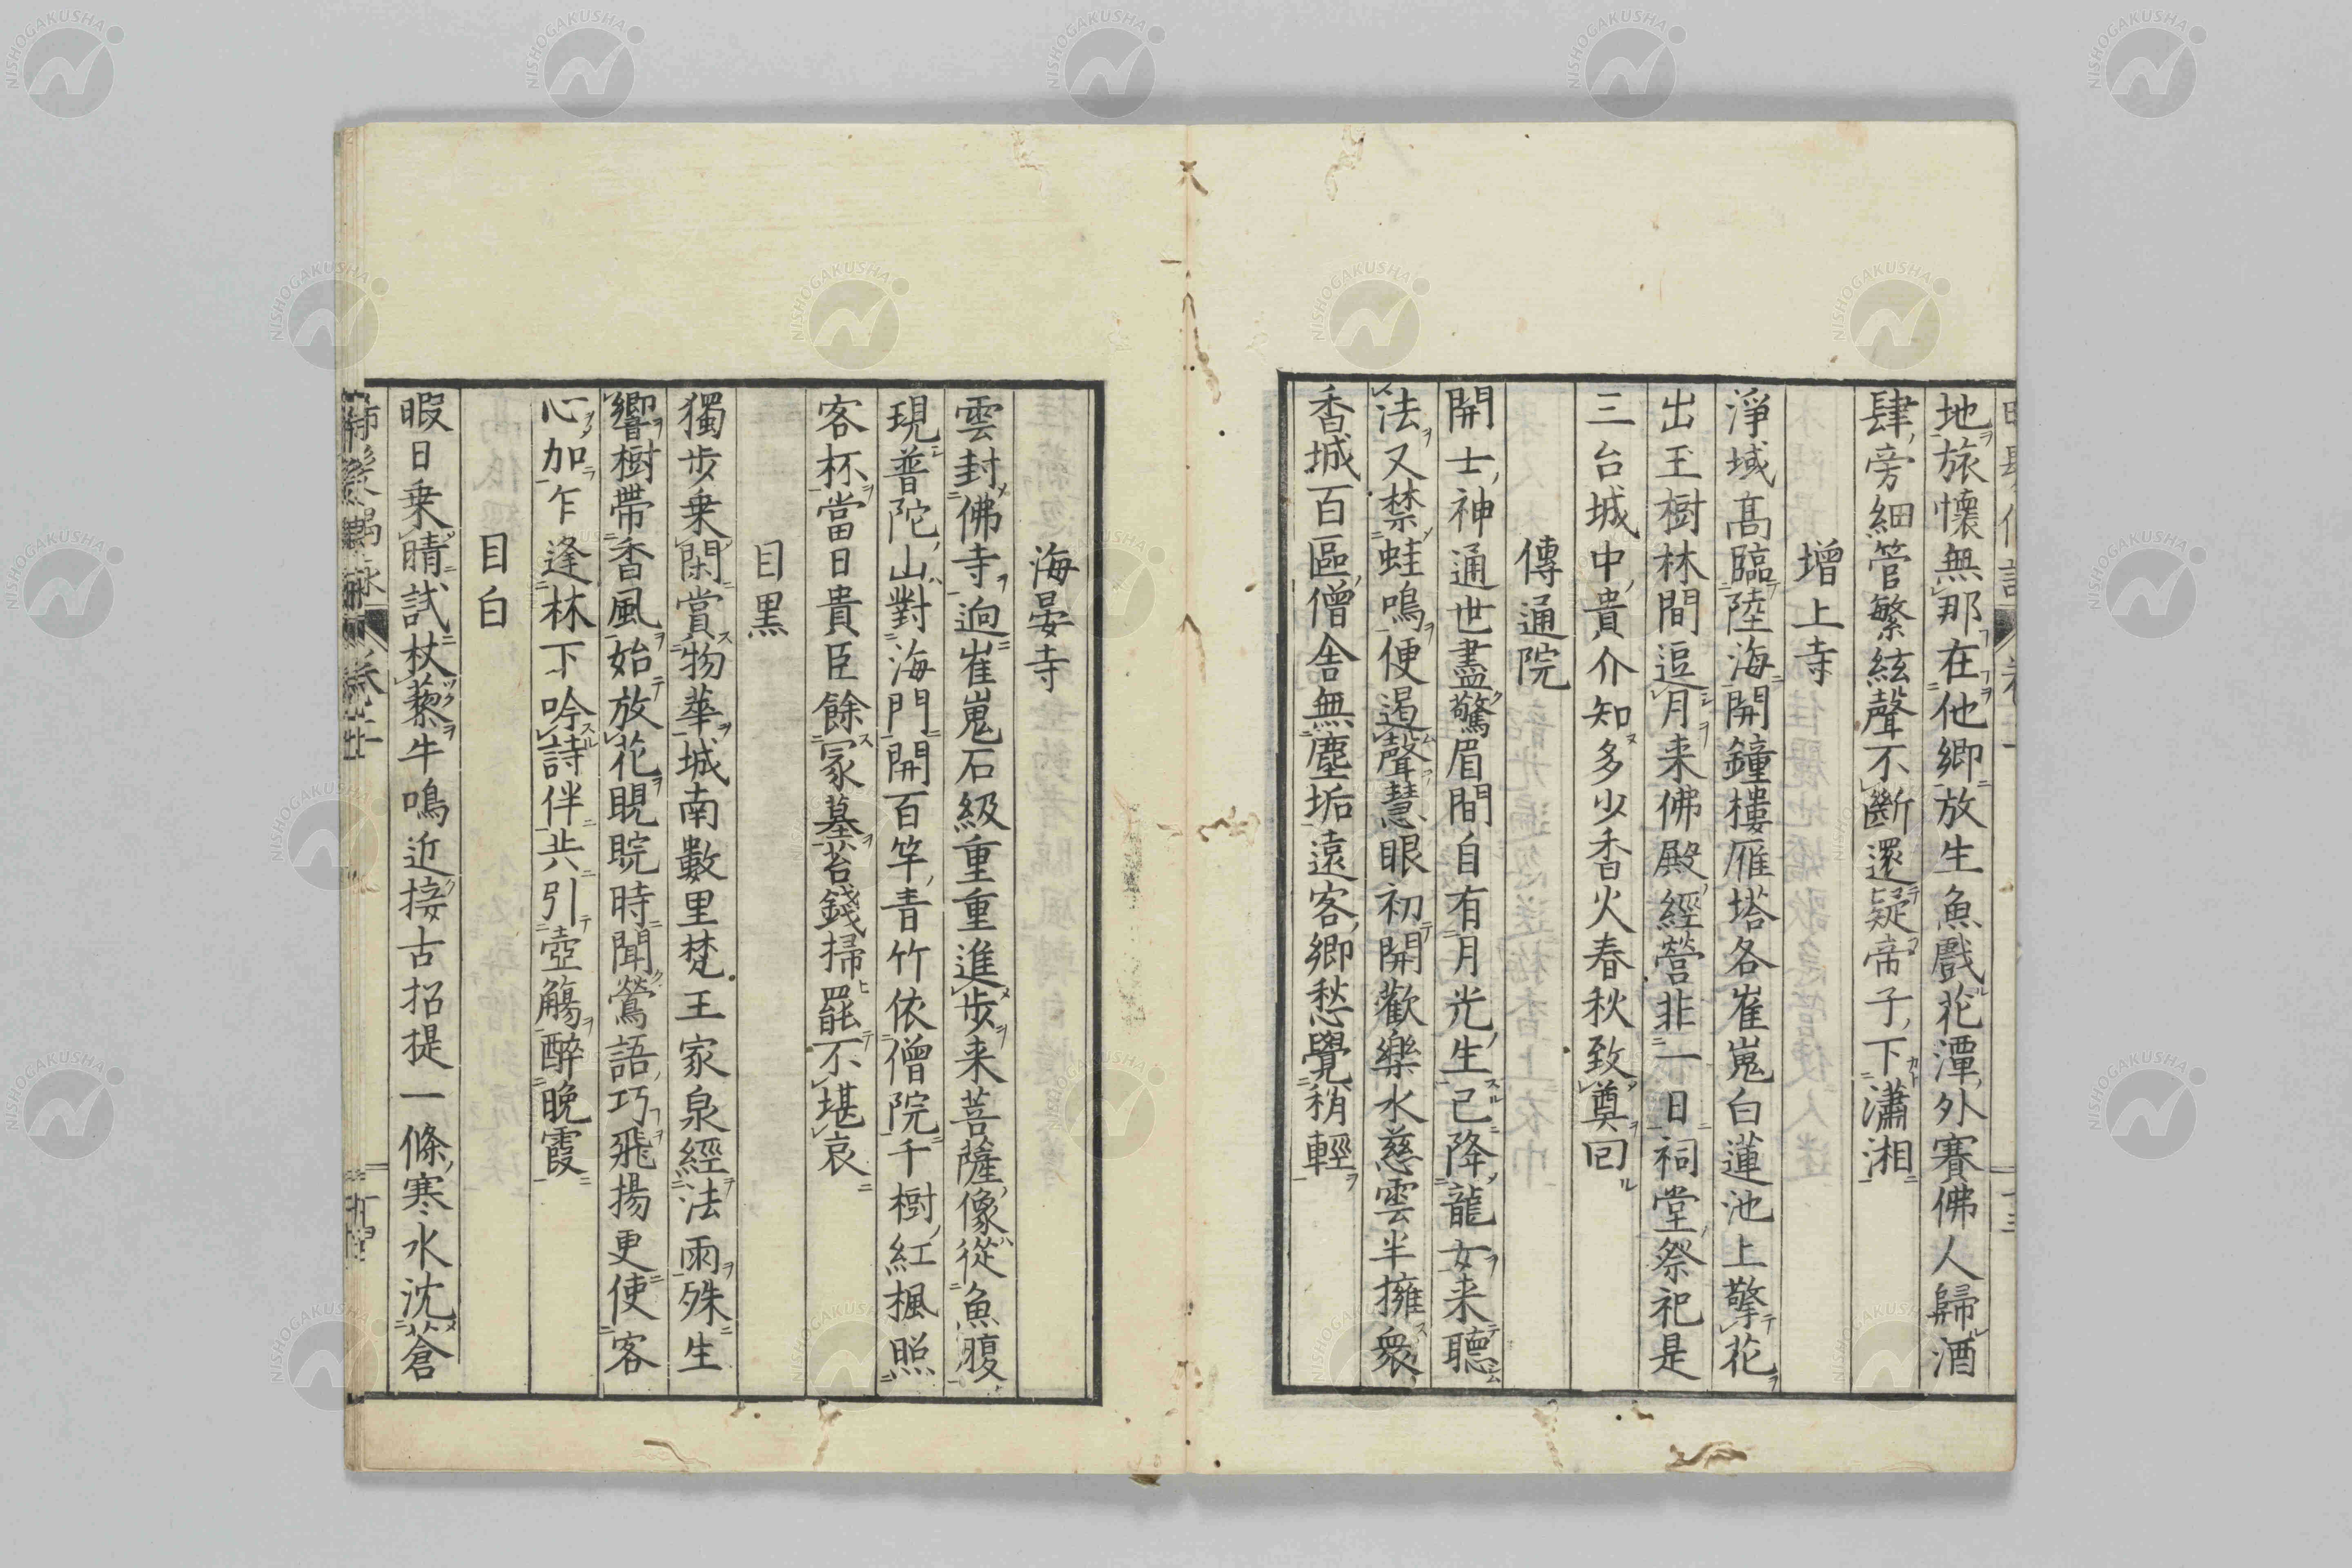 地旅懷無那在他鄉放生魚戲花潭外賽佛人歸酒
肆旁細管繁絃聲不斷還疑帝子下瀟湘
増上寺
淨域高臨陸海開鐘樓雁塔各崔嵬白蓮池上擎花
出玉樹林間逗月来佛殿經營非一日祠堂祭祀是
三台城中貴介知多少香火春秋致奠回
傳通院
開士神通世盡驚眉間自有月光生已降龍女来聴
法又禁蛙鳴便遏聲慧眼初開歡樂水慈雲半擁衆
香城百區僧舎無塵垢遠客鄉愁覺稍輕
海晏寺
雲封佛寺逈崔嵬石級重重進步来菩薩像從魚腹
現普陀山對海門開百竿青竹依僧院千樹紅楓照
客杯當日貴臣餘冢墓苔錢掃罷不堪哀
目黒
獨步乗閑賞物華城南數里梵王家泉經法雨殊生
響樹帶香風始放花睍睆時聞鶯語巧飛揚更使客
心加乍逢林下吟詩伴共引壺觴醉晩霞
目白
暇日乗晴試杖藜牛鳴近接古招提一條寒水沈蒼